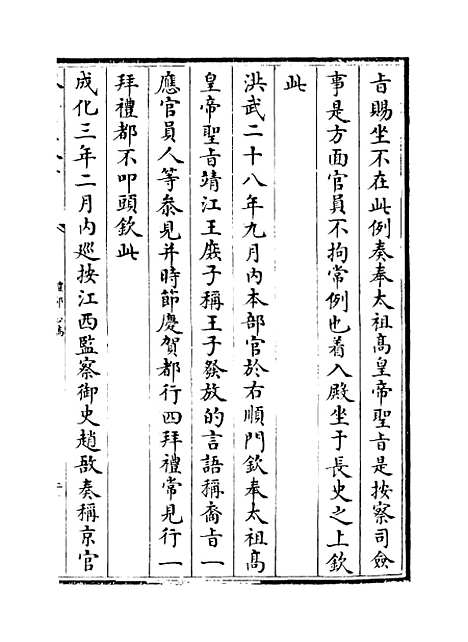 旨賜坐不在此例奏奉太祖髙皇帝聖旨是按察司僉
事是方面官員不拘常例也着入殿坐于長史之上欽
此
洪武二十八年九月內本部官於右順門欽奉太祖髙
皇帝聖旨靖江王庶子稱王子發放的言語稱裔旨一
應官員人等叅見并時節慶賀都行四拜禮常見行一
拜禮都不叩頭欽此
成化三年二月內廵按江西監察御史趙敔奏稱京官